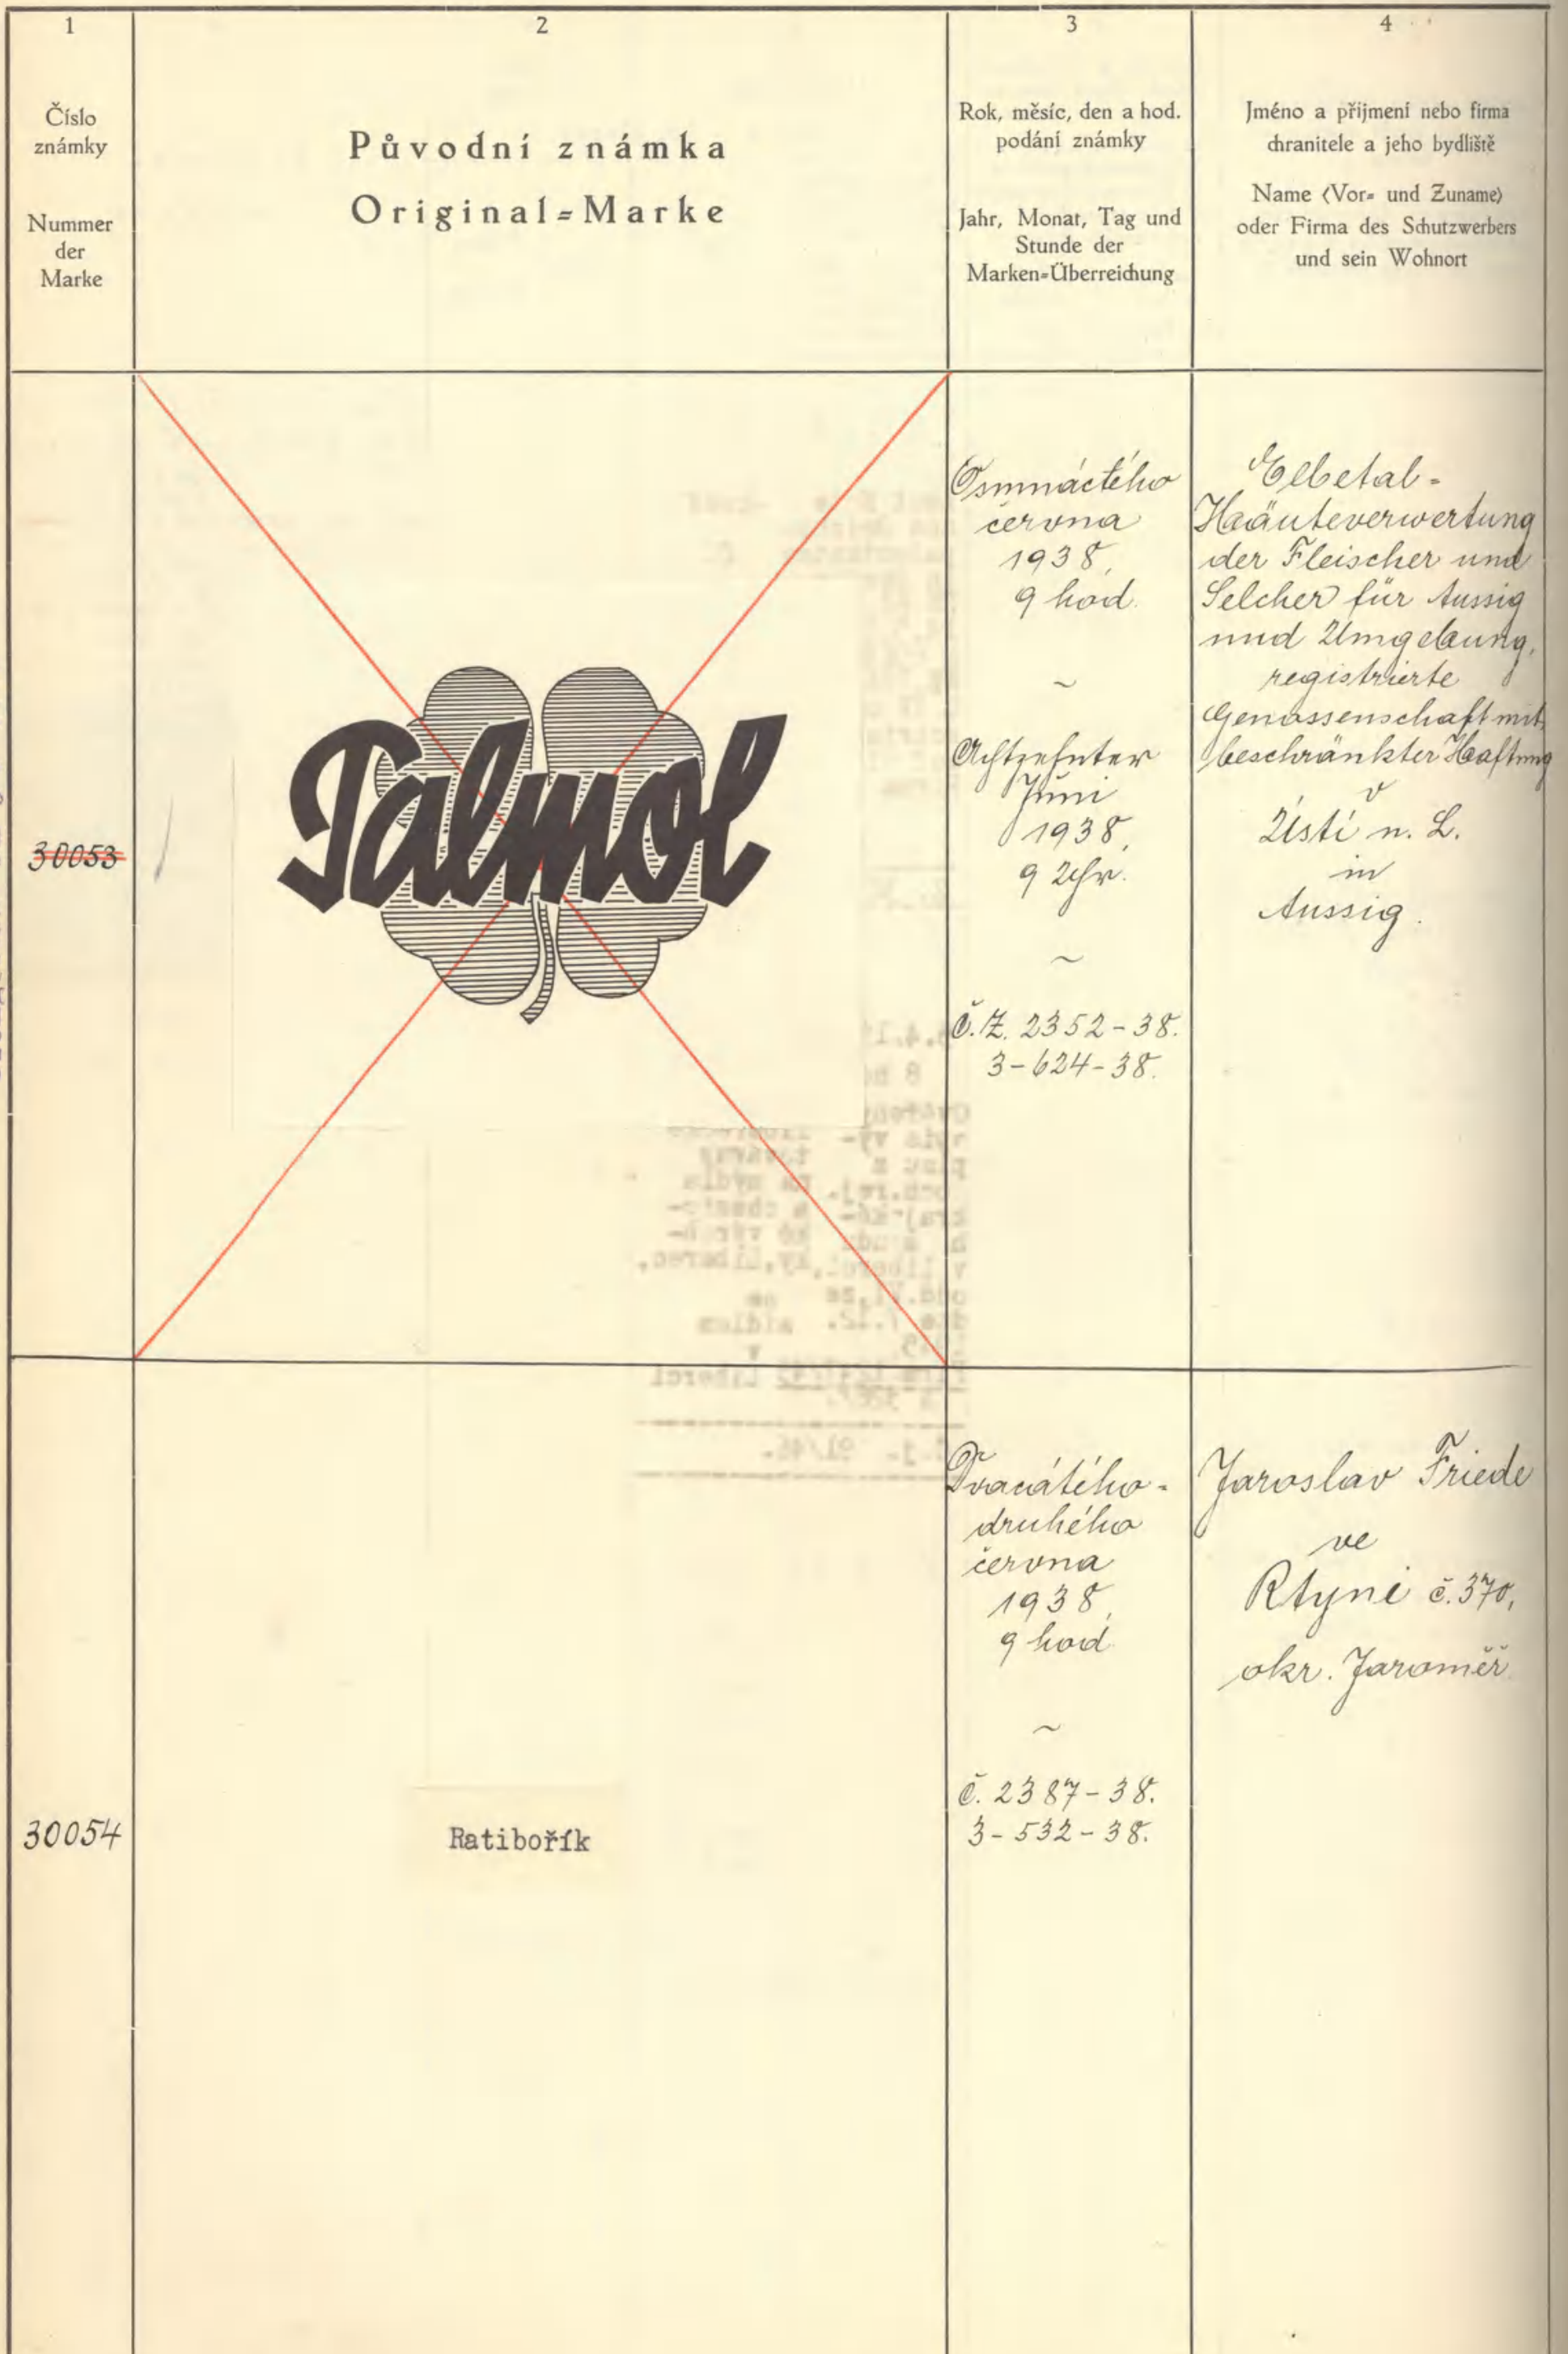 1
Číslo
známky
Nummer
der
Marke
2
Původní známka
Original=Marke
3
Rok, měsíc, den a hod.
podání známky
Jahr, Monat, Tag und
Stunde der
Marken=Überreichung
4
Jméno a přijmení nebo firma
chranitele a jeho bydliště
Name (Vor= und Zuname)
oder Firma des Schutzwerbers
und sein Wohnort
30053
Talmol
Osmnáctého
června
1938,
9 hod.
~
Achtzehnter
Juni
1938,
9 Uhr.
~
Č.Z. 2352-38.
3-624-38.
Elbetal-
Haäuteverwertung
der Fleischer und
Selcher für Aussig
und Umgebung,
registrierte
Genossenschaft mit
beschränkter Haftung
v
Ústí n. L.
in
Aussig.
30054
Ratibořík
Dvacátého-
druhého
června
1938,
9 hod
~
č. 2387-38.
3-532-38.
Jaroslav Friede
ve
Rtyni č. 370,
okr. Jaroměř